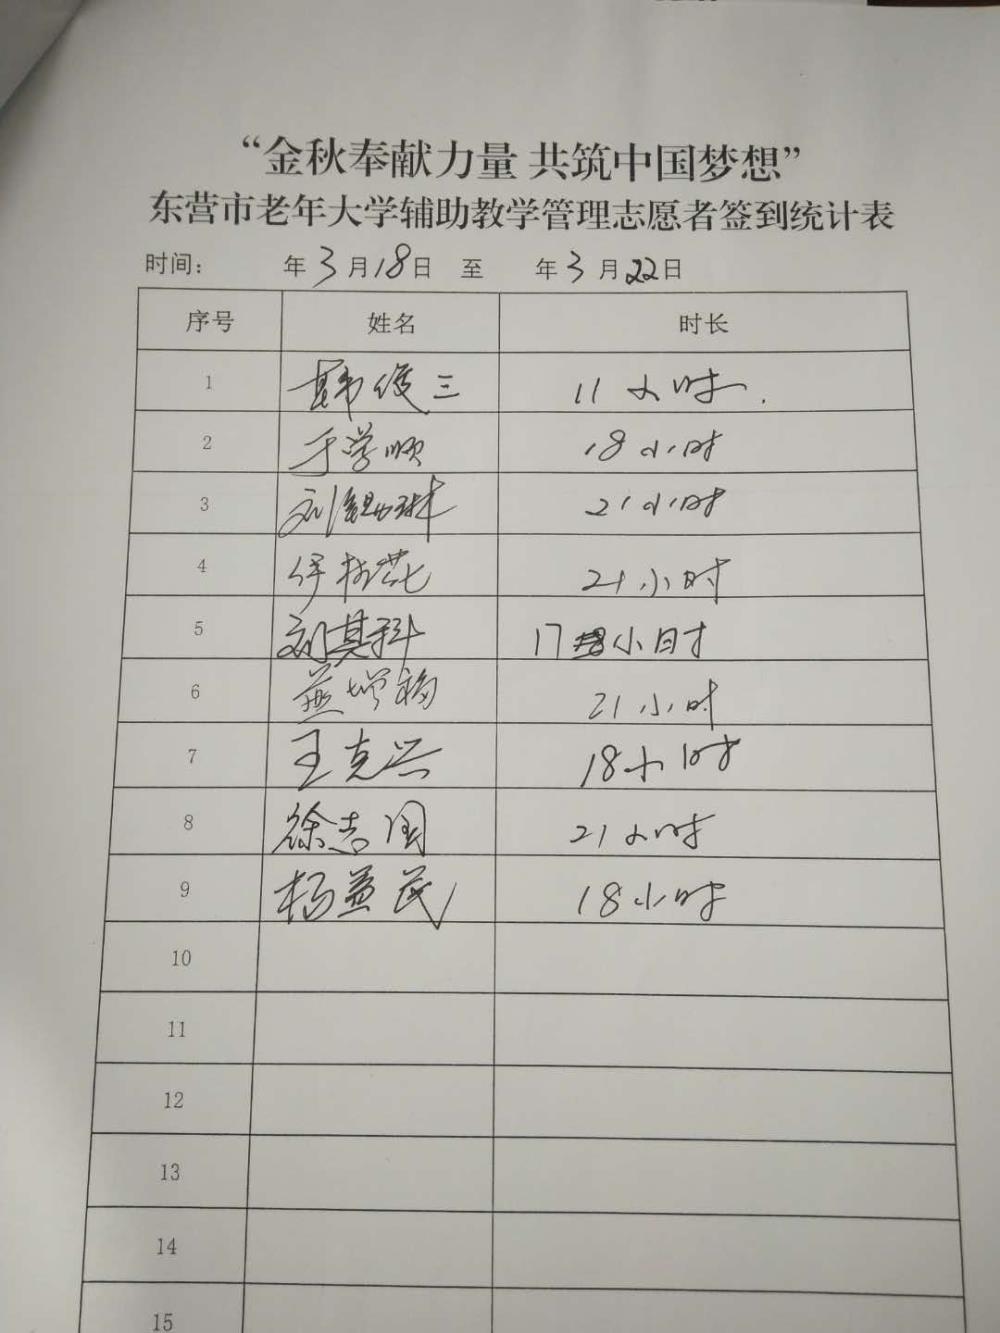 “金秋奉献力量 共筑中国梦想”
东营市老年大学辅助教学管理志愿者签到统计表
时间： 年3月18日 至 年3月22日
序号 姓名 时长
1 韩俊三 11小时.
2 于学顺 18小时
3 刘 琳 21小时
4 伊 花 21小时
5 刘其科 17小时
6 燕增福 21小时
7 王克兴 18小时
8 徐志国 21小时
9 杨益民 18小时
10
11
12
13
14
15